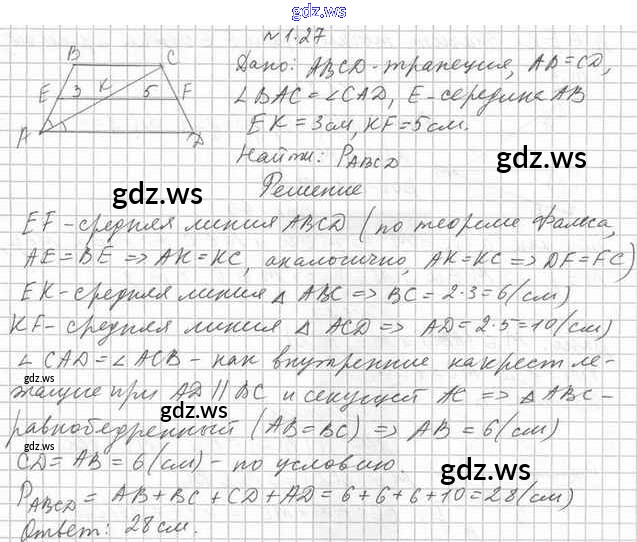 gdz.ws
N 1.27
B C
E 3 K 5 F
A D
Дано: ABCD - трапеция, AB = CD,
∠BAC = ∠CAD, E - середина AB
EK = 3 см, KF = 5 см.
Найти: P_ABCD
gdz.ws gdz.ws
Решение
EF - средняя линия ABCD (по теореме Фалеса,
AE = BE => AK = KC, аналогично, AK = KC => DF = FC)
EK - средняя линия △ ABC => BC = 2·3 = 6 (см)
KF - средняя линия △ ACD => AD = 2·5 = 10 (см)
∠ CAD = ∠ ACB - как внутренние накрест ле-
gdz.ws
жащие при AD || BC и секущей AC => △ ABC -
gdz.ws
равнобедренный (AB = BC) => AB = 6 (см)
CD = AB = 6 (см) - по условию.
gdz.ws gdz.ws
P_ABCD = AB + BC + CD + AD = 6 + 6 + 6 + 10 = 28 (см)
Ответ: 28 см.
gdz.ws